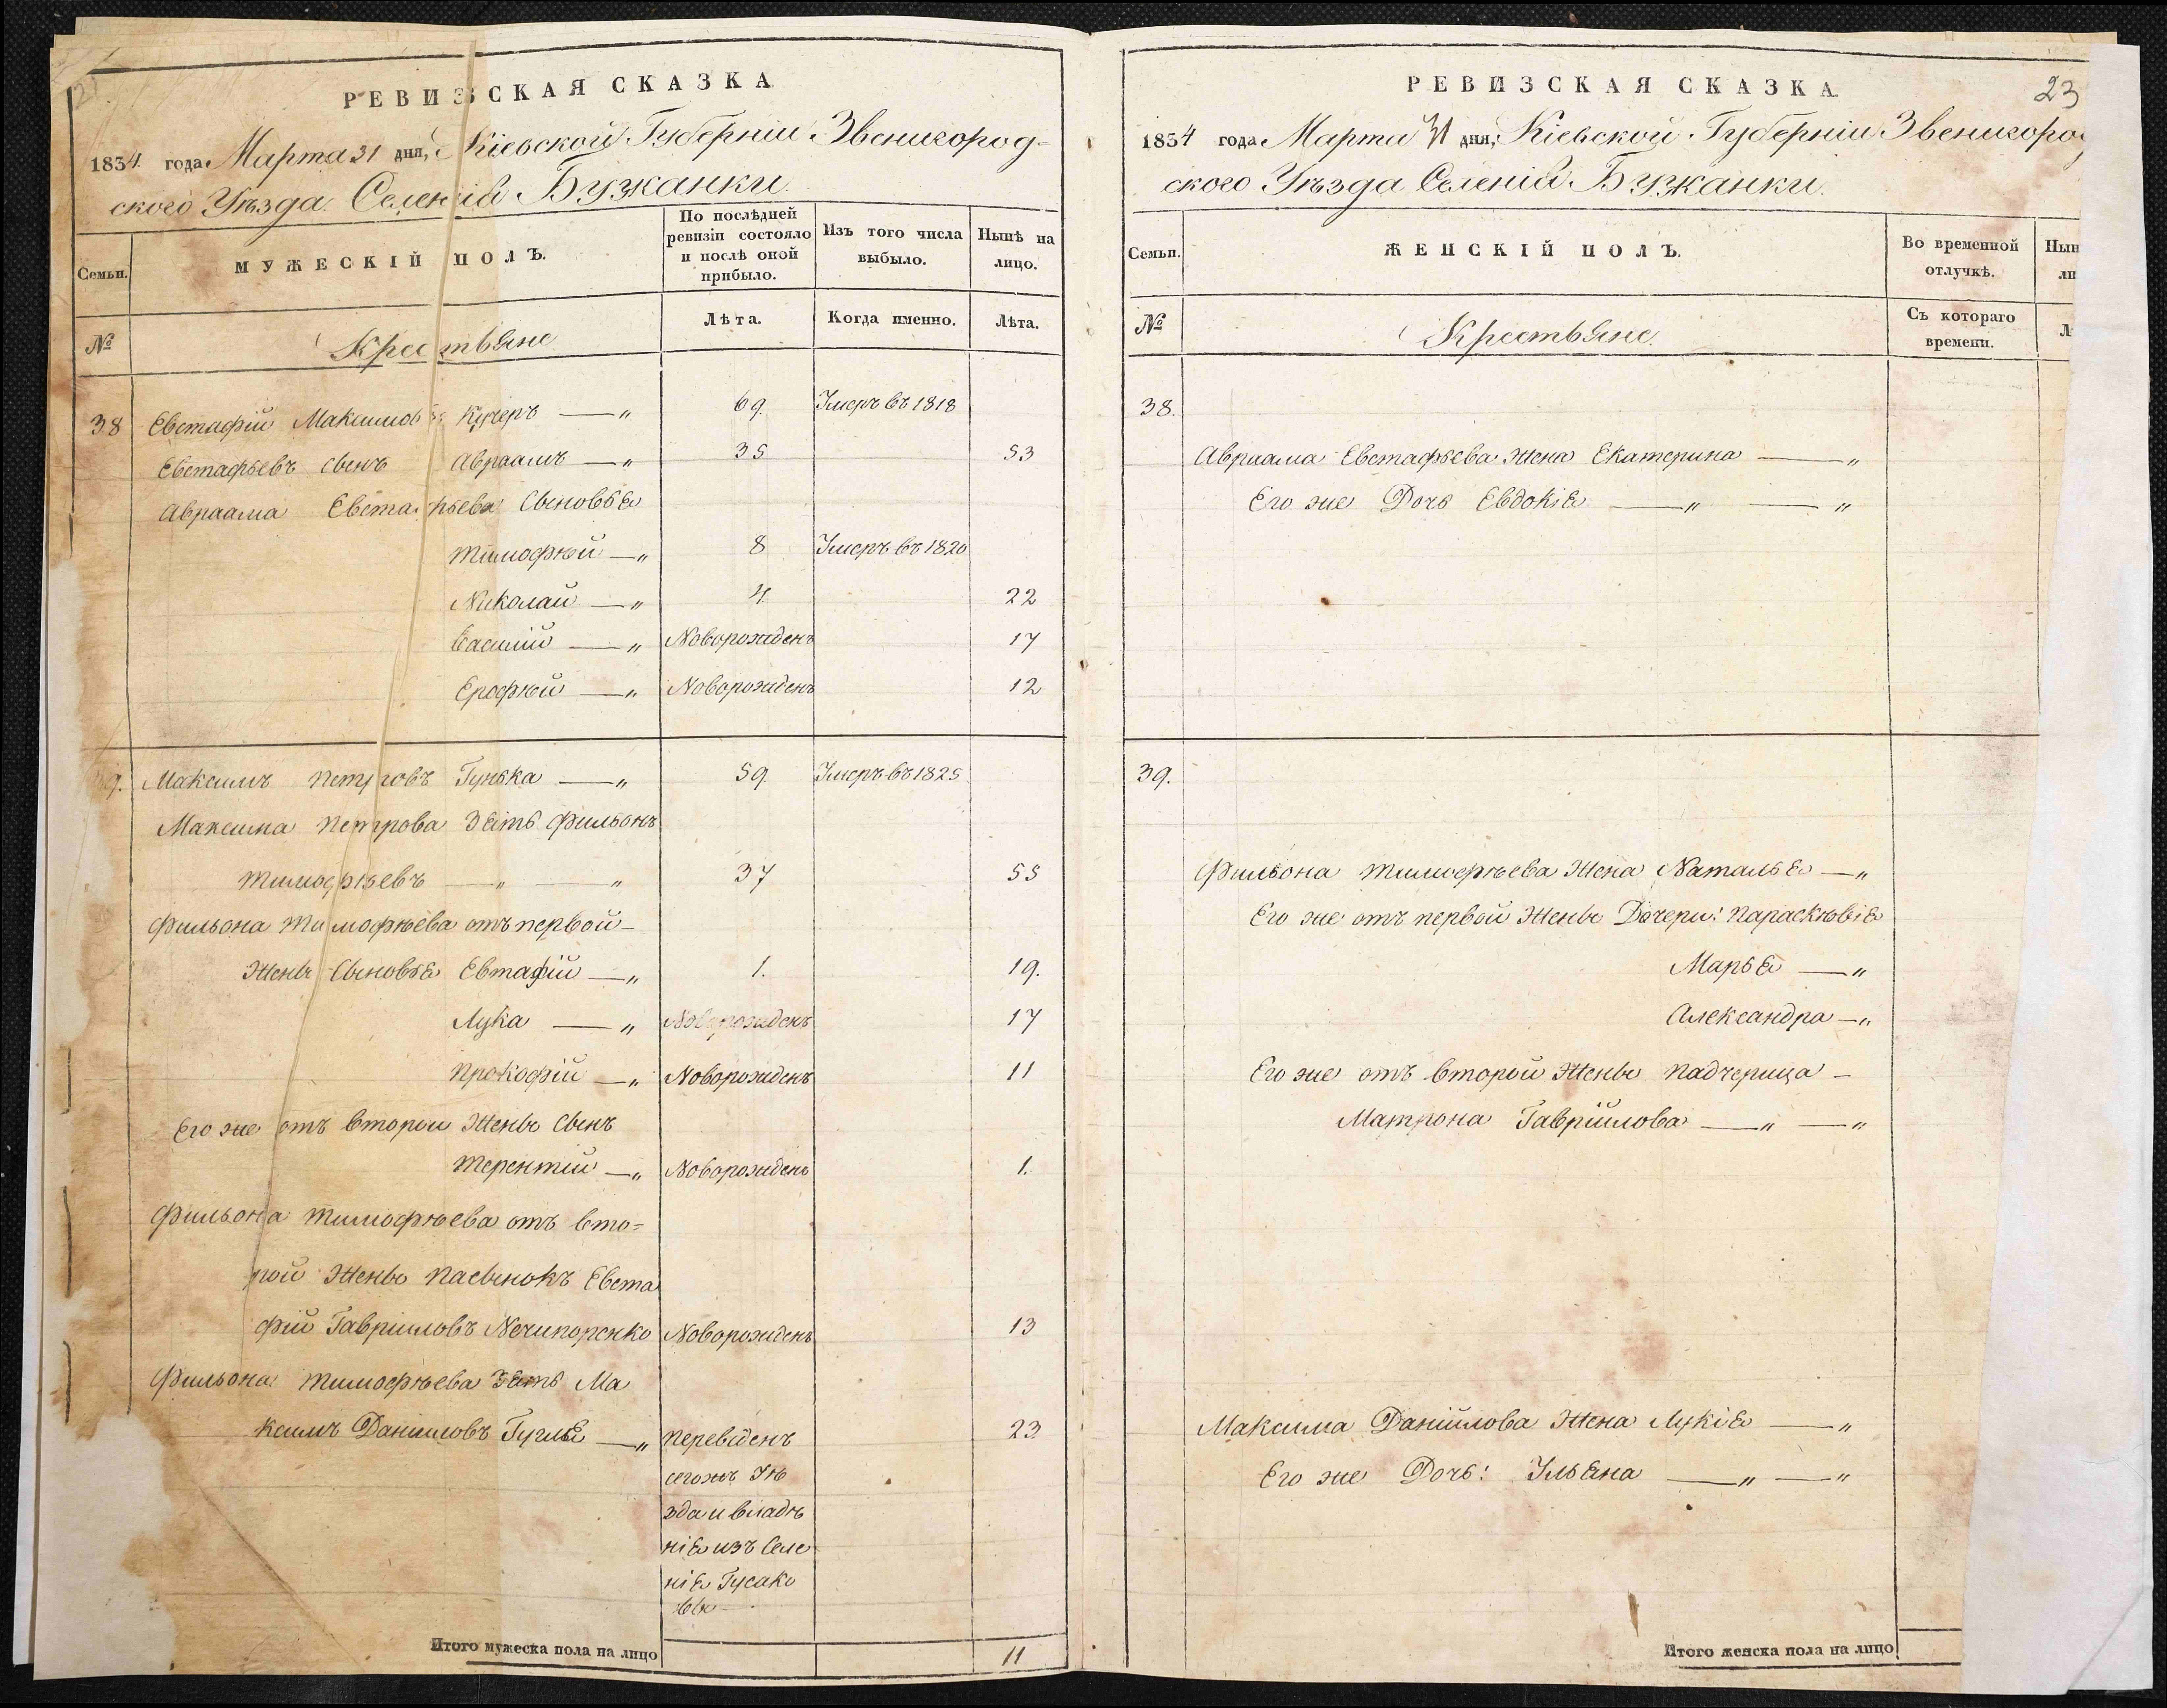 РЕВИЗСКАЯ СКАЗКА
1834 года Марта 31 дня, Кіевской Губерніи Звенигород-
ского Уѣзда Селенія Бужанки.
Семьи.
МУЖЕСКІЙ ПОЛЪ.
По послѣдней
ревизіи состояло
и послѣ оной
прибыло.
Изъ того числа
выбыло.
Нынѣ на
лицо.
№
Крестьяне
Лѣта.
Когда именно.
Лѣта.
38 Евстафій Максимовъ Кучеръ — „ 69. Умеръ въ 1818
Евстафьевъ сынъ Авраамъ — „ 35 53
Авраама Евстафьева Сыновья
Тимофѣй — „ 8 Умеръ въ 1820
Николай — „ 4 22
Василій — „ Новорожденъ 17
Ерофѣй — „ Новорожденъ 12
39. Максимъ Петровъ Гунька — „ 59. Умеръ въ 1825
Максима Петрова Зять Фильонъ
Тимофѣевъ — „ — „ 37 55
Фильона Тимофѣева отъ первой
Жены Сыновья Евтафій — „ 1. 19.
Лука — „ Новорожденъ 17
Прокофій — „ Новорожденъ 11
Его же отъ второй Жены Сынъ
Терентій — „ Новорожденъ 1.
Фильона Тимофѣева отъ вто=
рой Жены Пасынокъ Евста
фій Гавріиловъ Нечипоренко Новорожденъ 13
Фильона Тимофѣева Зять Ма
ксимъ Даніиловъ — „ Переведенъ 23
сегожъ Уѣ
зда и владѣ
нія изъ Селе
нія Гусако
вки
Итого мужеска пола на лицо 11
РЕВИЗСКАЯ СКАЗКА
23
1834 года Марта 31 дня, Кіевской Губерніи Звенигород
ского Уѣзда Селенія Бужанки.
Семьи.
ЖЕНСКІЙ ПОЛЪ.
Во временной
отлучкѣ.
Нын
ли
№
Крестьяне.
Съ котораго
времени.
Л
38.
Авраама Евстафьева Жена Екатерина — „
Его же Дочь Евдокія — „ — „
39.
Фильона Тимофѣева Жена Наталья — „
Его же отъ первой Жены Дочери: Параскѣвія
Марья — „
Александра — „
Его же отъ второй Жены Падчерица —
Матрона Гавріилова — „ — „
Максима Даніилова Жена Лукія — „
Его же Дочь: Ульяна — „ — „
Итого женска пола на лицо